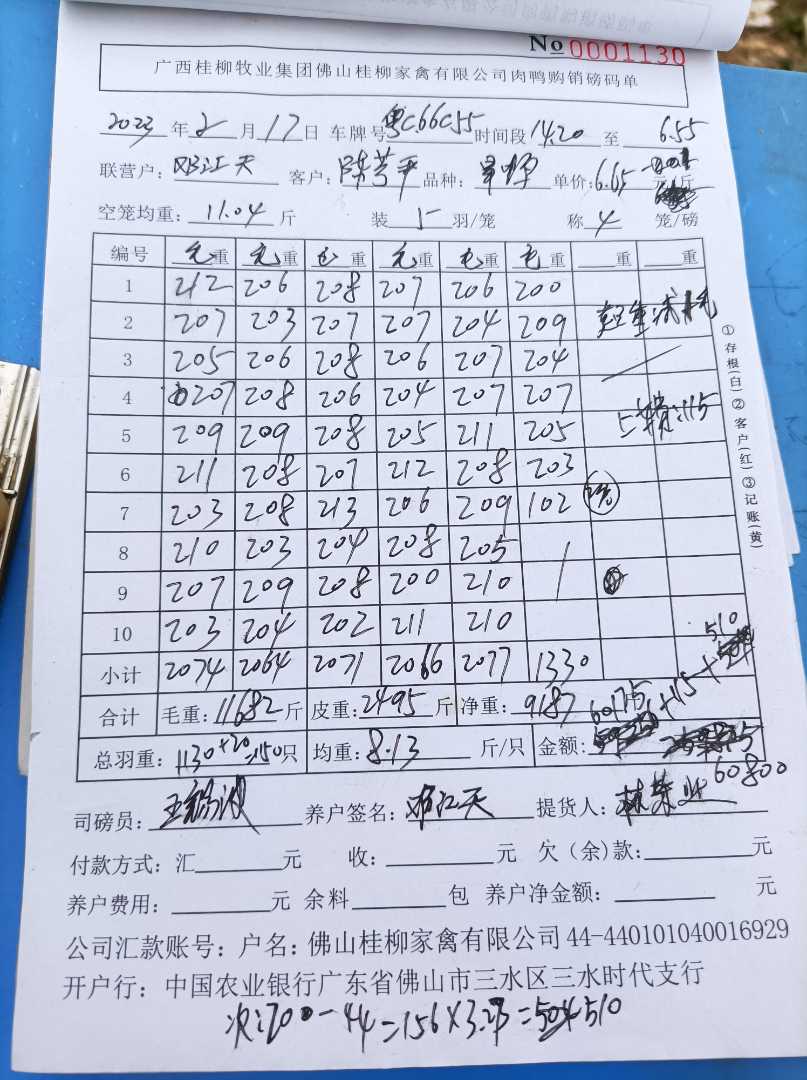 No 0001130
广西桂柳牧业集团佛山桂柳家禽有限公司肉鸭购销磅码单
2023年2月17日 车牌号粤C66C55时间段14.20至6.55
联营户：邓江天 客户：陈芳平品种： 单价：6.65元/斤
空笼均重：11.04斤 装5羽/笼 称4笼/磅
编号 毛重 毛重 毛重 毛重 毛重 毛重 重 重
1 212 206 208 207 206 200
2 207 203 207 207 204 209
3 205 206 208 206 207 204
4 207 208 206 204 207 207
5 209 209 208 205 211 205 115
6 211 208 207 212 208 203
7 203 208 213 206 209 102
8 210 203 204 208 205
9 207 209 208 200 210
10 203 204 202 211 210
510
小计 2074 2064 2071 2066 2077 1330
合计 毛重：11682斤 皮重：2495斤 净重：9187
60175+115+
总羽重：1130+20=1150只 均重：8.13斤/只 金额：
60800
司磅员： 养户签名：邓江天 提货人：林荣业
付款方式：汇元 收：元 欠（余）款：元
养户费用：元 余料包 养户净金额：元
公司汇款账号：户名：佛山桂柳家禽有限公司 44-440101040016929
开户行：中国农业银行广东省佛山市三水区三水时代支行
次：200-44=156×3.27=504 510
①存根(白)②客户(红)③记账(黄)